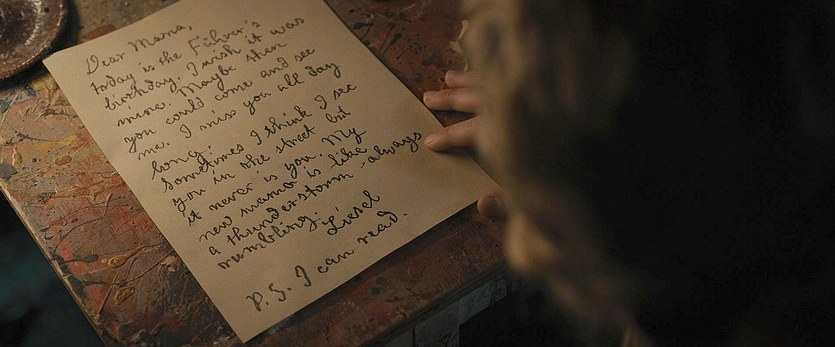 Dear Mama,
today is the Führer's
birthday. I wish it was
mine. Maybe then
you could come and see
me. I miss you all day
long.
Sometimes I think I see
you in the street but
it never is you. My
new mama is like
a thunderstorm - always
rumbling.
Liesel
P.S. I can read.